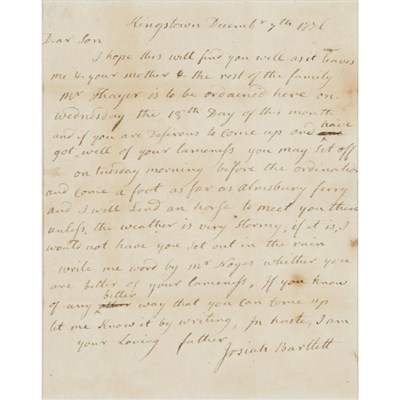 Kingstown Decembr 7th 1776
Dear Son
I hope this will find you well as it leaves
me & your mother & the rest of the family
mr Thayer is to be ordained here on
Wednesday the 18th Day of this month
and if you are Desirous to come up and have
got well of your lameness you may Set off
on tuesday morning before the ordination
and come a foot as far as Almsbury ferry
and I will Send an horse to meet you there
unless the weather is very Stormy, if it is, I
would not have you set out in the rain
write me word by mr Noyes whether you
are better of your lameness, If you know
of any better way that you can come up
let me know it by writing, In haste, I am
your Loving father
Josiah Bartlett